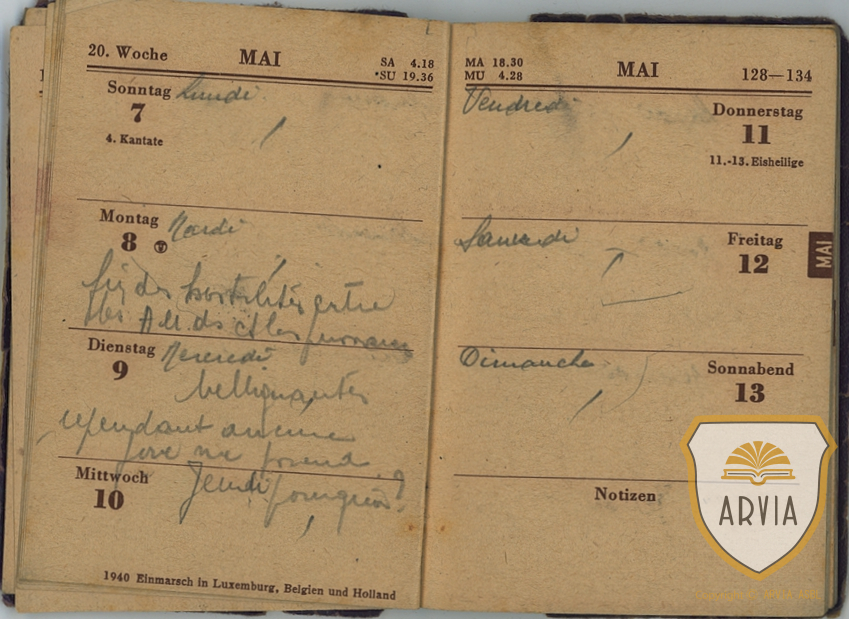 20. Woche MAI SA 4.18
*SU 19.36
Sonntag Lundi
7
4. Kantate
Montag Mardi
8
fin des hostilités entre
les All.ds et les
Dienstag Mercredi
9
belligérantes
cependant aucune
joie ne prend
Mittwoch Jeudi pourquoi ?
10
1940 Einmarsch in Luxemburg, Belgien und Holland
MA 18.30 MAI 128—134
MU 4.28
Vendredi Donnerstag
11
11.-13. Eisheilige
Samedi Freitag
12
MAI
Dimanche Sonnabend
13
Notizen
ARVIA